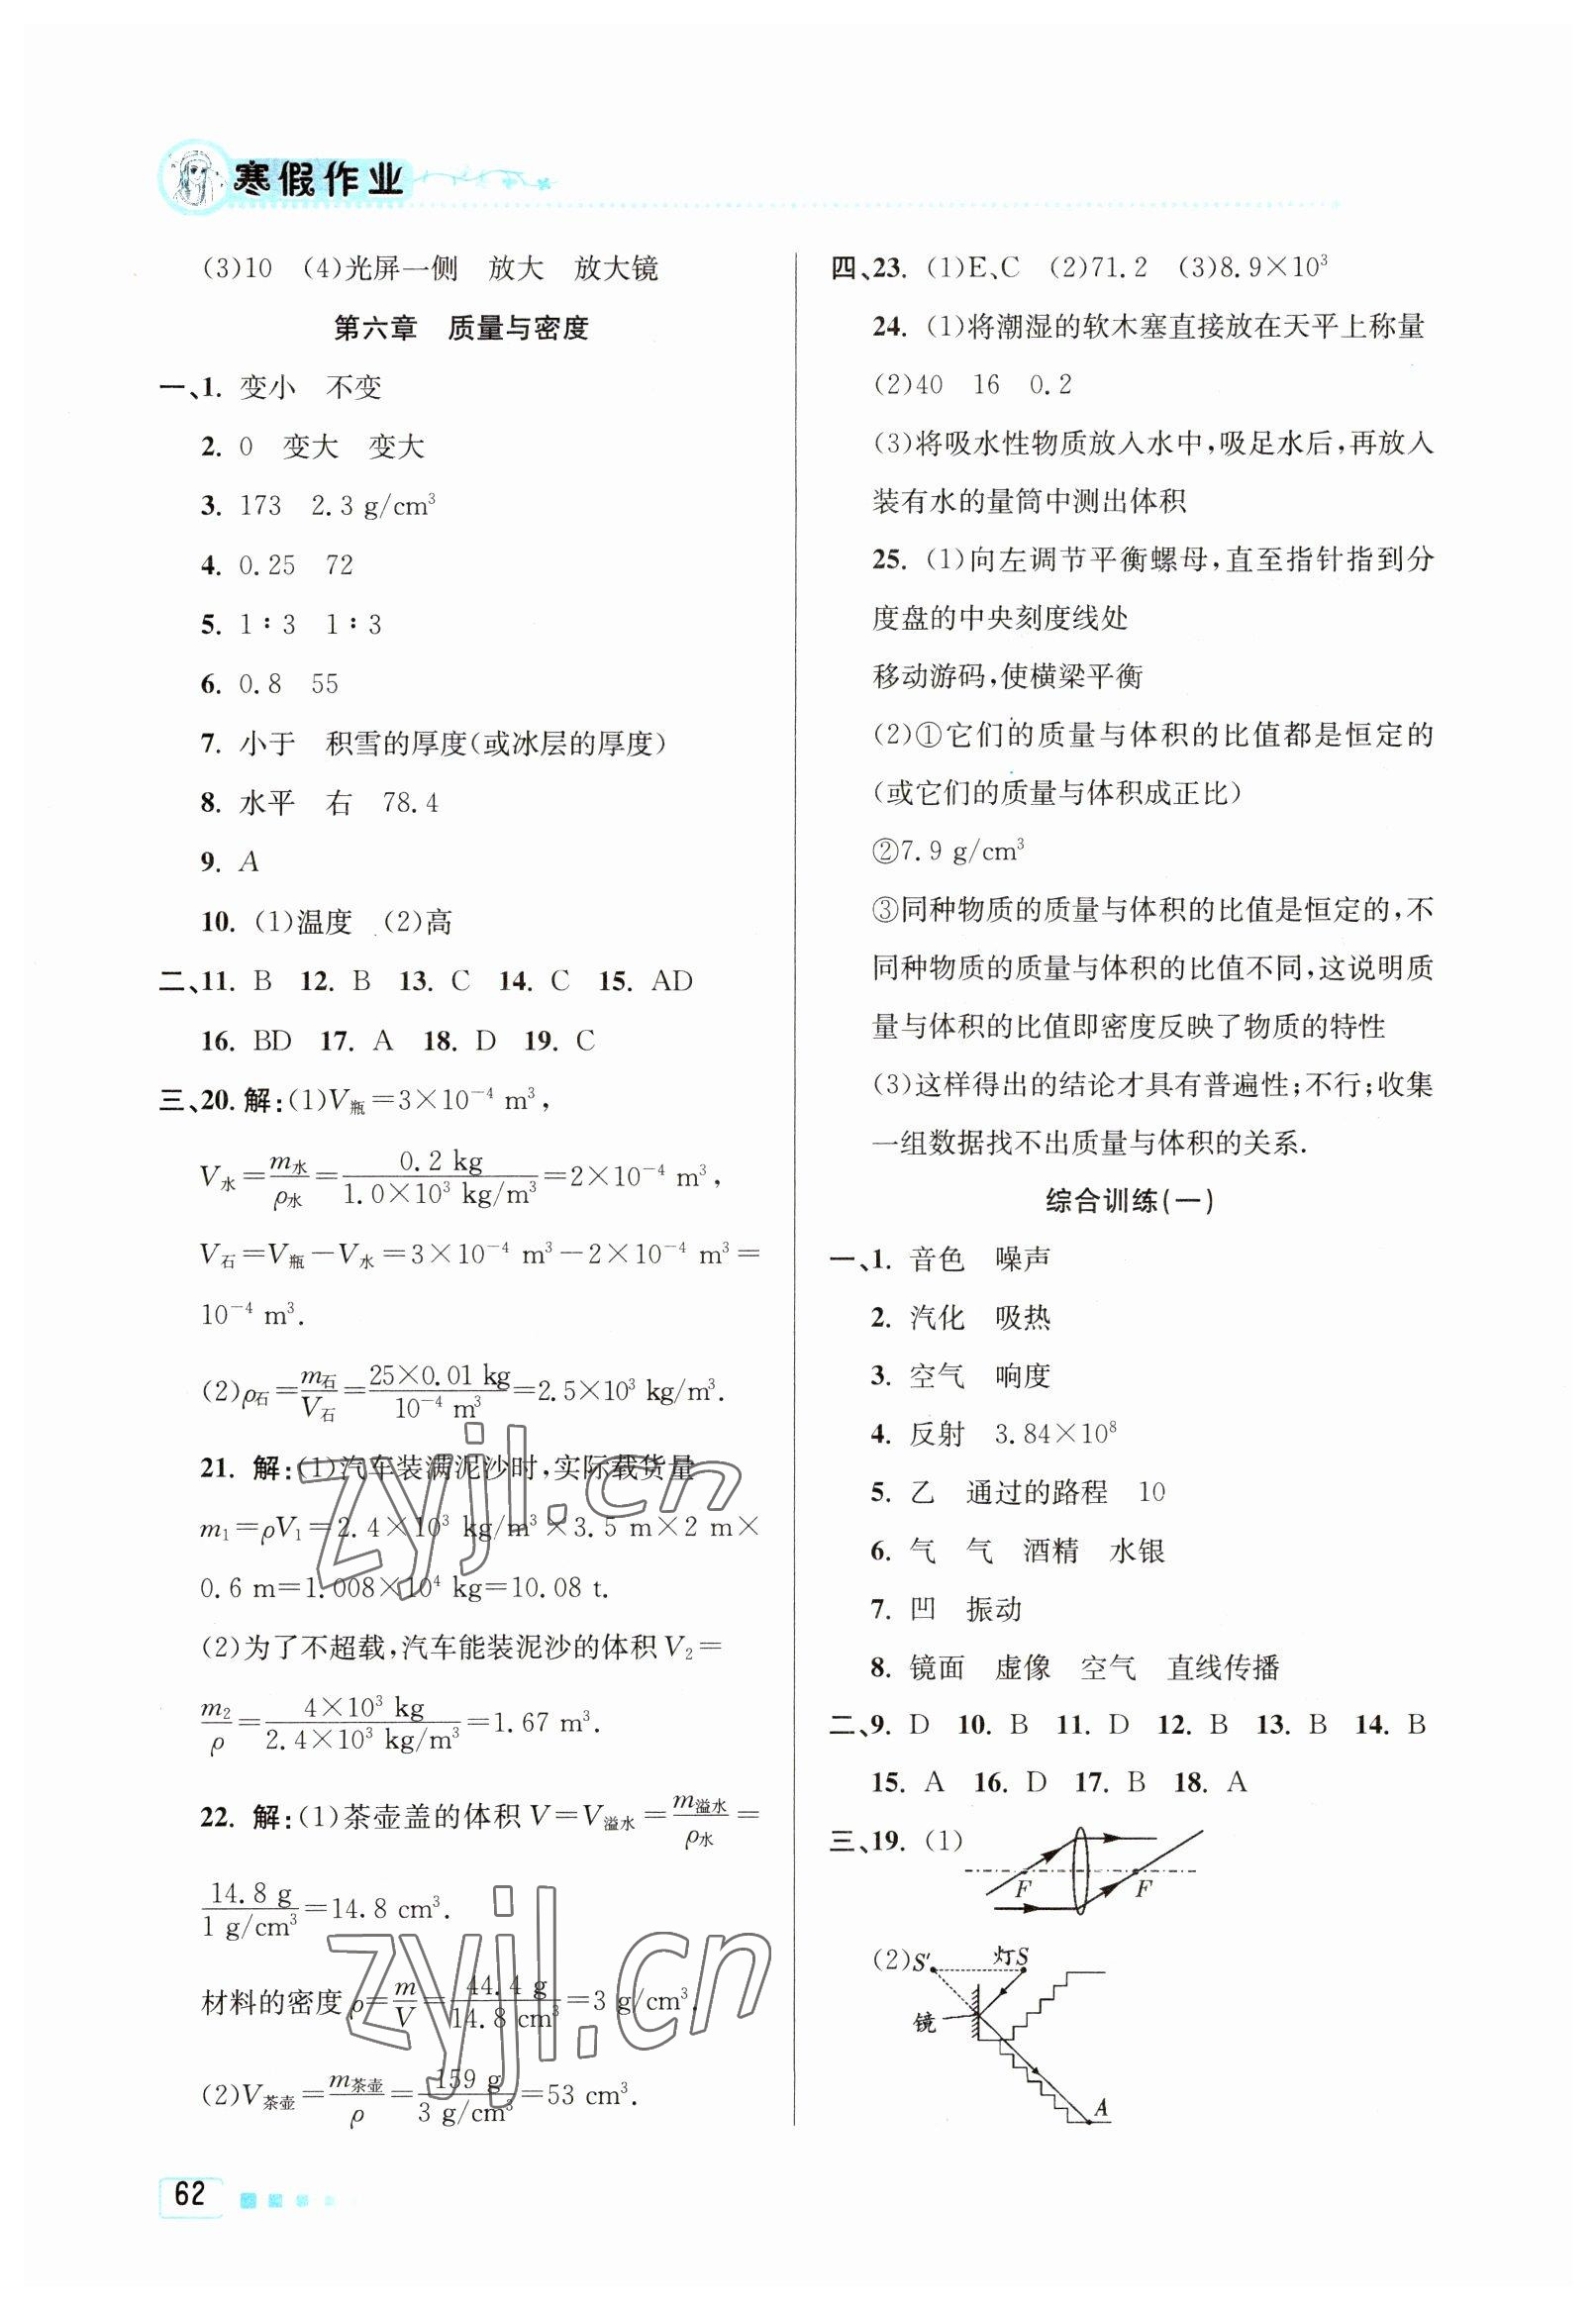 寒假作业
(3)10 (4)光屏一侧 放大 放大镜
第六章 质量与密度
一、1. 变小 不变
2. 0 变大 变大
3. 173 2.3 g/cm³
4. 0.25 72
5. 1∶3 1∶3
6. 0.8 55
7. 小于 积雪的厚度(或冰层的厚度)
8. 水平 右 78.4
9. A
10. (1)温度 (2)高
二、11. B 12. B 13. C 14. C 15. AD
16. BD 17. A 18. D 19. C
三、20. 解:(1)V瓶=3×10⁻⁴ m³,
V水=m水/ρ水=0.2 kg/1.0×10³ kg/m³=2×10⁻⁴ m³,
V石=V瓶-V水=3×10⁻⁴ m³-2×10⁻⁴ m³=
10⁻⁴ m³.
(2)ρ石=m石/V石=25×0.01 kg/10⁻⁴ m³=2.5×10³ kg/m³.
21. 解:(1)汽车装满泥沙时,实际载货量
m₁=ρV₁=2.4×10³ kg/m³×3.5 m×2 m×
0.6 m=1.008×10⁴ kg=10.08 t.
(2)为了不超载,汽车能装泥沙的体积V₂=
m₂/ρ=4×10³ kg/2.4×10³ kg/m³=1.67 m³.
22. 解:(1)茶壶盖的体积V=V溢水=m溢水/ρ水=
14.8 g/1 g/cm³=14.8 cm³.
材料的密度ρ=m/V=44.4 g/14.8 cm³=3 g/cm³.
(2)V茶壶=m茶壶/ρ=159 g/3 g/cm³=53 cm³.
zyjl.cn
zyjl.cn
62
四、23. (1)E、C (2)71.2 (3)8.9×10³
24. (1)将潮湿的软木塞直接放在天平上称量
(2)40 16 0.2
(3)将吸水性物质放入水中,吸足水后,再放入
装有水的量筒中测出体积
25. (1)向左调节平衡螺母,直至指针指到分
度盘的中央刻度线处
移动游码,使横梁平衡
(2)①它们的质量与体积的比值都是恒定的
(或它们的质量与体积成正比)
②7.9 g/cm³
③同种物质的质量与体积的比值是恒定的,不
同种物质的质量与体积的比值不同,这说明质
量与体积的比值即密度反映了物质的特性
(3)这样得出的结论才具有普遍性;不行;收集
一组数据找不出质量与体积的关系.
综合训练(一)
一、1. 音色 噪声
2. 汽化 吸热
3. 空气 响度
4. 反射 3.84×10⁸
5. 乙 通过的路程 10
6. 气 气 酒精 水银
7. 凹 振动
8. 镜面 虚像 空气 直线传播
二、9. D 10. B 11. D 12. B 13. B 14. B
15. A 16. D 17. B 18. A
三、19. (1)
F F
(2) S′ 灯S
镜
A